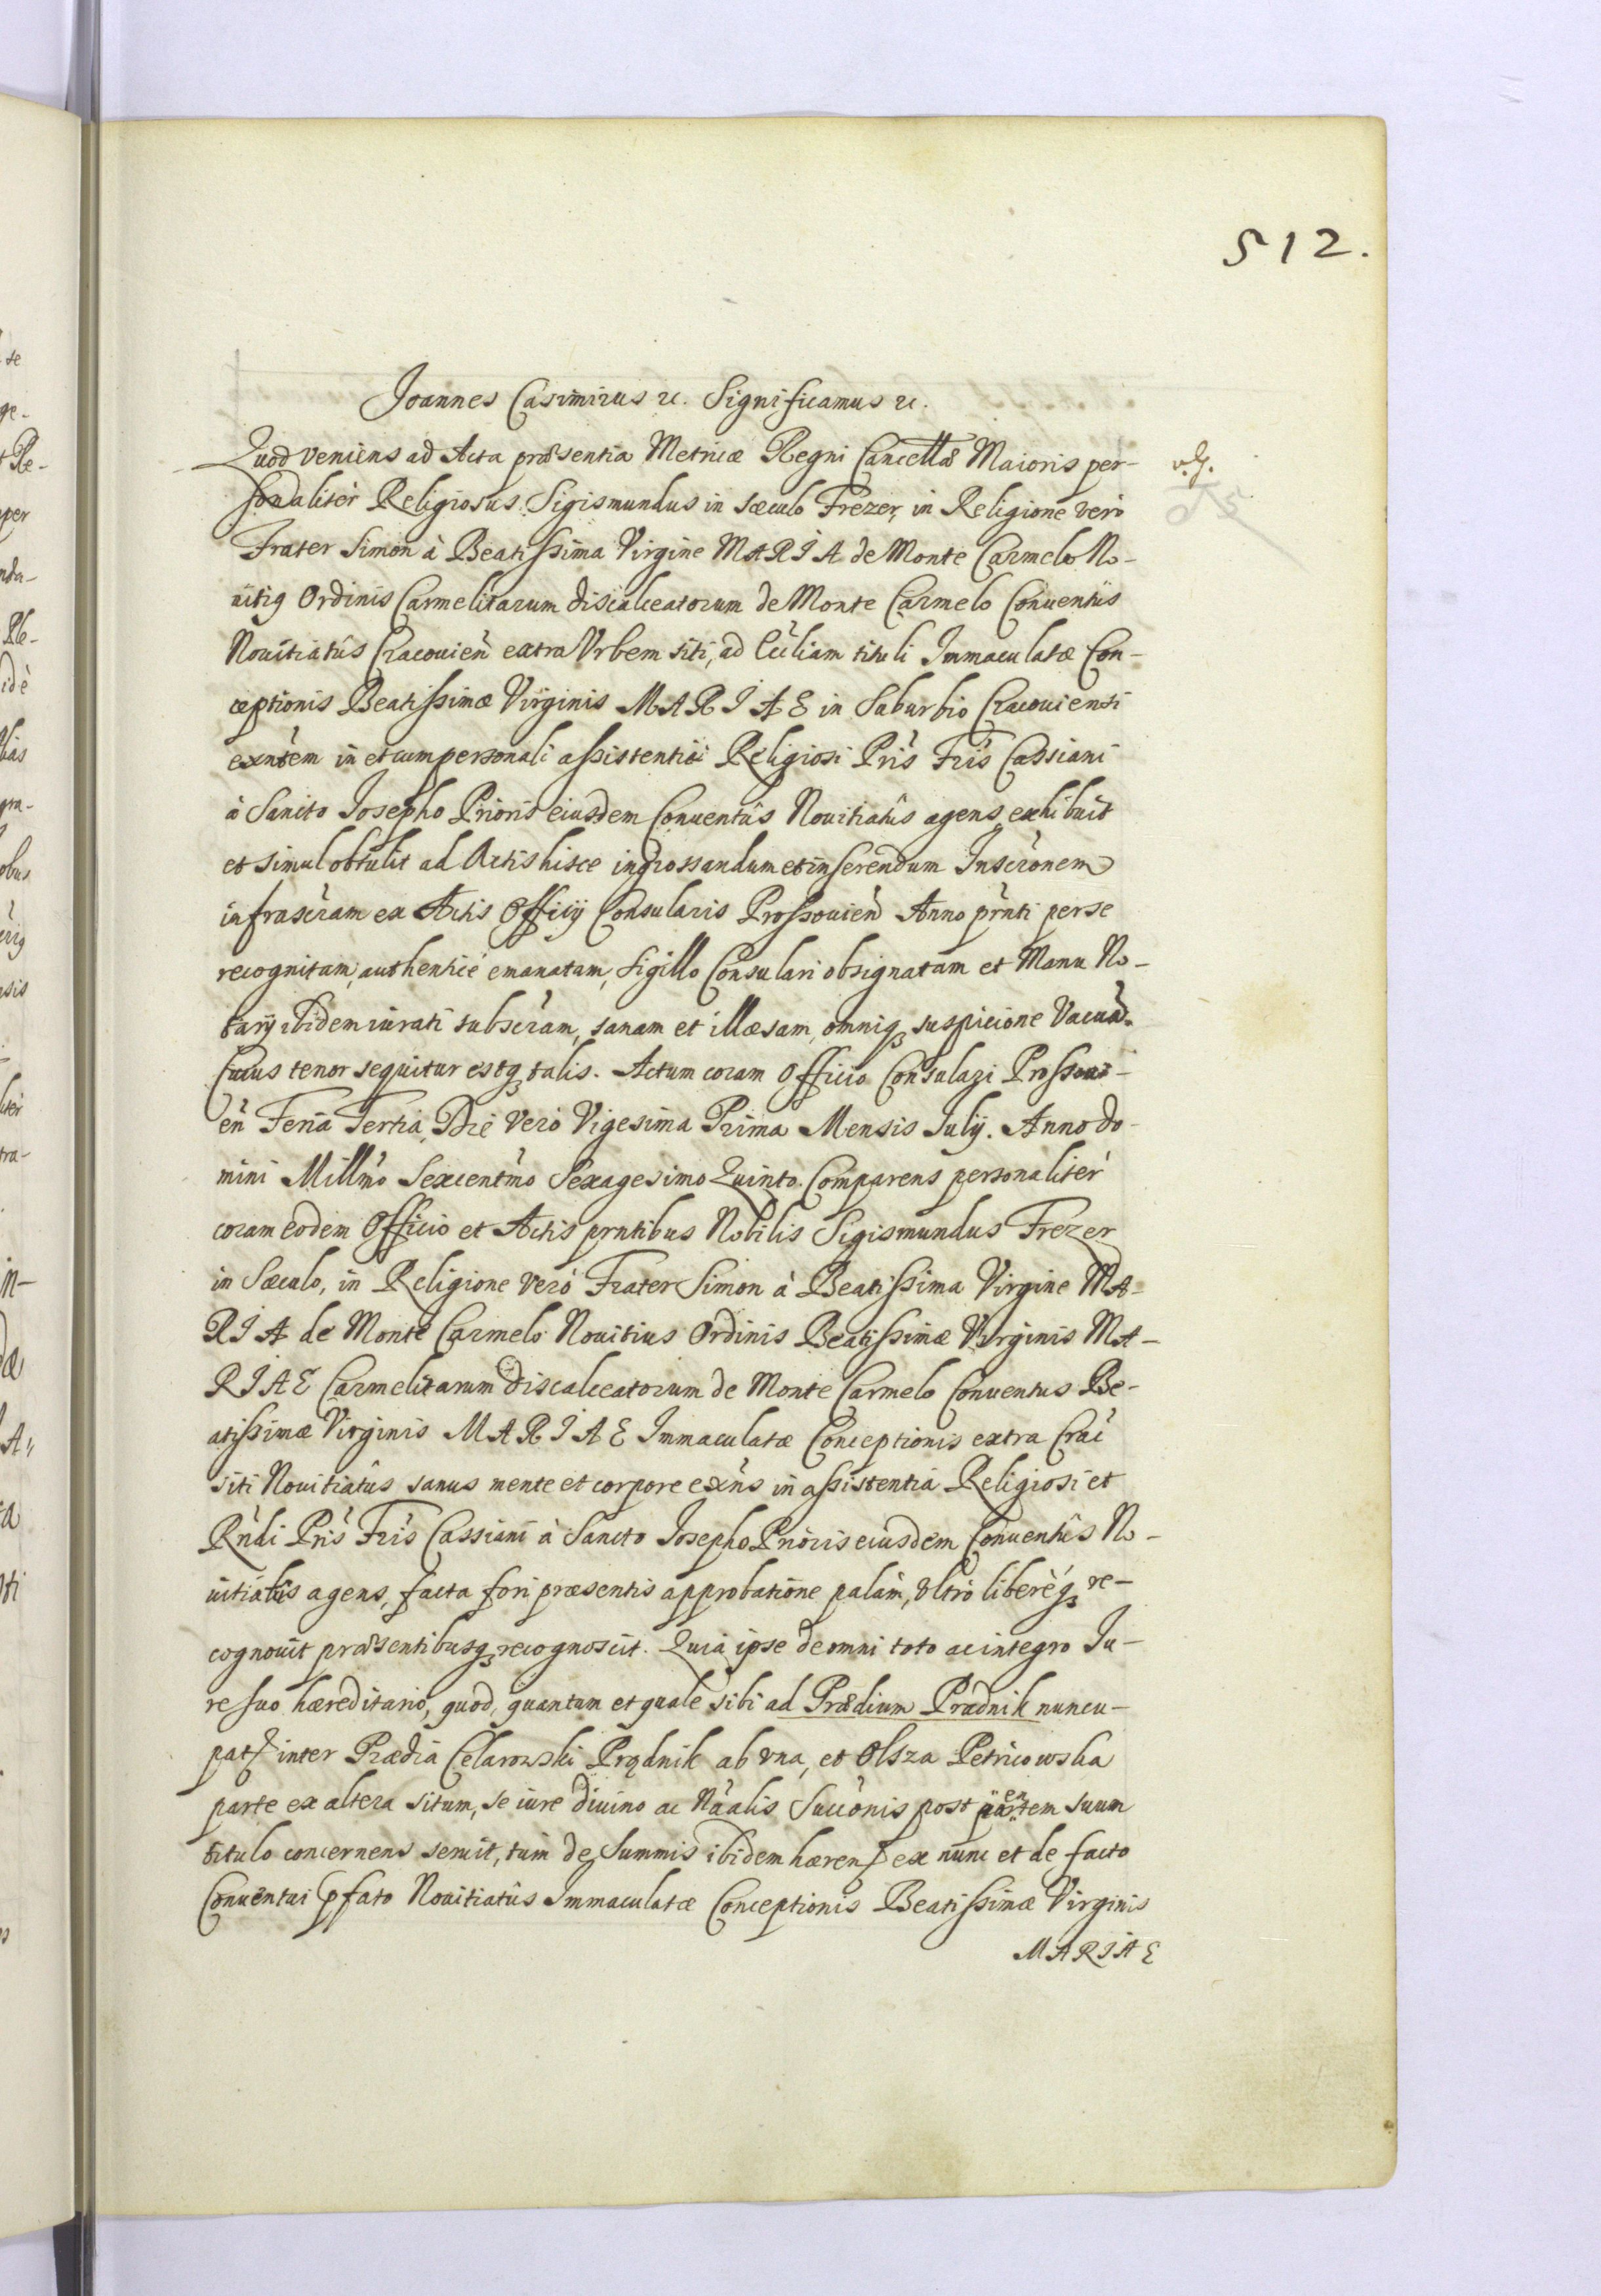 512.
Joannes Casimirus &c. Significamus &c.
Quod veniens ad Acta præsentia Metricæ Regni Cancellæ Maioris per-
sonaliter Religiosus Sigismundus in sæculo Frezer, in Religione verò
Frater Simon à Beatissima Virgine MARIA de Monte Carmelo No-
uitiq Ordinis Carmelitarum discalceatorum de Monte Carmelo Conuentus
Nouitiatûs Cracouien extra Vrbem siti, ad Eccliam tituli Immaculatæ Con-
ceptionis Beatissimæ Virginis MARIAE in Suburbio Cracouiensi
exntem in et cum personali assistentia Religiosi Pris Fris Cassiani
à Sancto Josepho Prioris eiusdem Conuentûs Nouitiatûs agens, exhibuit
et simul obtulit ad Actis hisce ingrossandum et inserendum Inscronem
infrascram ex Actis Officij Consularis Prossouien Anno prnti per se
recognitam, authenticè emanatam, sigillo Consulari obsignatam et Manu No-
tarij ibidem iurati subscram, sanam et illæsam, omniq suspicione Vacuam.
Cuius tenor sequitur estq talis. Actum coram Officio Consulari Prossoui-
en Feria Tertia, Die Vero Vigesima Prima Mensis Julij. Anno Do-
mini Millmo Sexcentmo Sexagesimo Quinto. Comparens personaliter
coram eodem Officio et Actis prntibus Nobilis Sigismundus Frezer
in Sæculo, in Religione verò Frater Simon à Beatissima Virgine MA-
RIA de Monte Carmelo Nouitius Ordinis Beatissimæ Virginis MA-
RIAE Carmelitarum discalceatorum de Monte Carmelo Conuentus Be-
atissimæ Virginis MARIAE Immaculatæ Conceptionis extra Crac
siti Nouitiatûs sanus mente et corpore exns in assistentia Religiosi et
Rndi Pris Fris Cassiani à Sancto Josepho Prioris eiusdem Conuentûs No-
uitiatûs agens, facta fori præsentis approbatione palàm, vltrò liberèq re-
cognouit præsentibusq recognoscit. Quia ipse de omni toto ac integro Ju-
re suo hæreditario, quod, quantum et quale sibi ad Prædium Prædnik nuncu-
pat inter Prædia Celarowski Prądnik ab vna, et Olsza Petricowska
parte ex altera situm, se iure diuino ac Naalis Succonis post partem suum
titulo concernens seruit, tum de Summis ibidem hæren ex nunc et de facto
Conuentui pfato Nouitiatûs Immaculatæ Conceptionis Beatissimæ Virginis
MARIAE